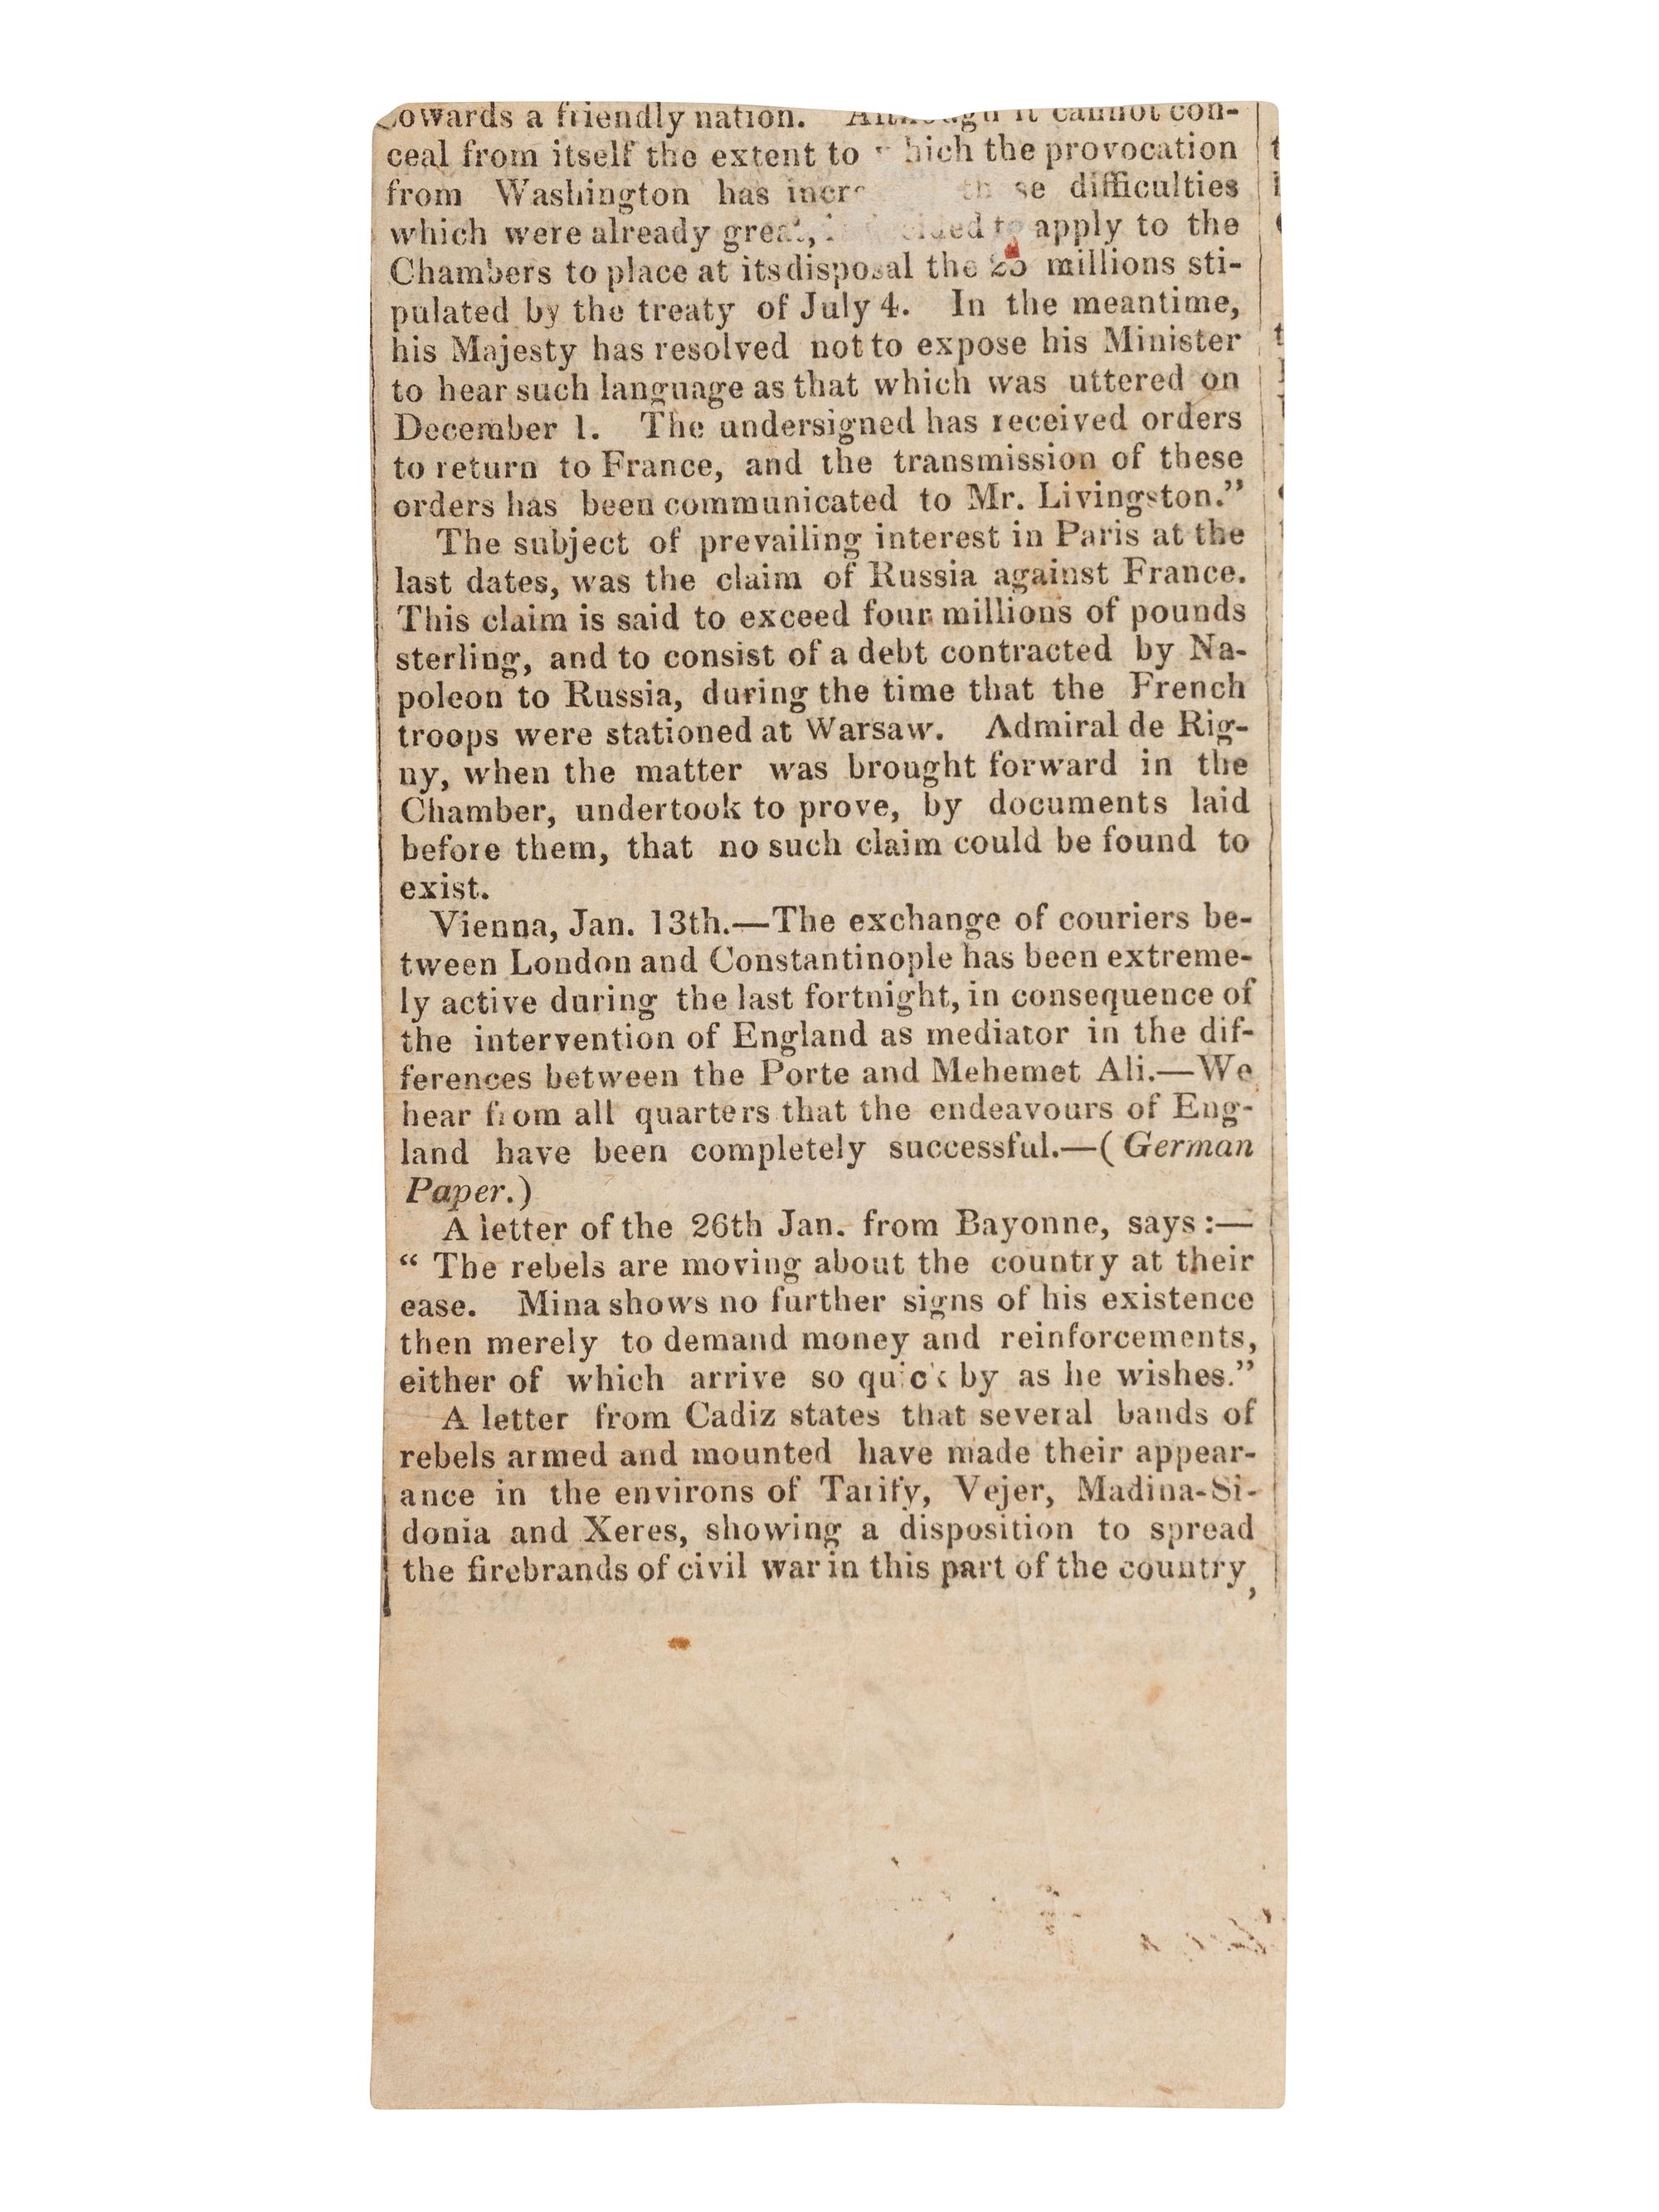 towards a friendly nation. Although it cannot con-
ceal from itself the extent to which the provocation
from Washington has incr these difficulties
which were already great, to apply to the
Chambers to place at its disposal the 25 millions sti-
pulated by the treaty of July 4. In the meantime,
his Majesty has resolved not to expose his Minister
to hear such language as that which was uttered on
December 1. The undersigned has received orders
to return to France, and the transmission of these
orders has been communicated to Mr. Livingston."
The subject of prevailing interest in Paris at the
last dates, was the claim of Russia against France.
This claim is said to exceed four millions of pounds
sterling, and to consist of a debt contracted by Na-
poleon to Russia, during the time that the French
troops were stationed at Warsaw. Admiral de Rig-
ny, when the matter was brought forward in the
Chamber, undertook to prove, by documents laid
before them, that no such claim could be found to
exist.
Vienna, Jan. 13th.—The exchange of couriers be-
tween London and Constantinople has been extreme-
ly active during the last fortnight, in consequence of
the intervention of England as mediator in the dif-
ferences between the Porte and Mehemet Ali.—We
hear from all quarters that the endeavours of Eng-
land have been completely successful.—(German
Paper.)
A letter of the 26th Jan. from Bayonne, says:—
"The rebels are moving about the country at their
ease. Mina shows no further signs of his existence
then merely to demand money and reinforcements,
either of which arrive so quick by as he wishes."
A letter from Cadiz states that several bands of
rebels armed and mounted have made their appear-
ance in the environs of Tarify, Vejer, Madina-Si-
donia and Xeres, showing a disposition to spread
the firebrands of civil war in this part of the country,